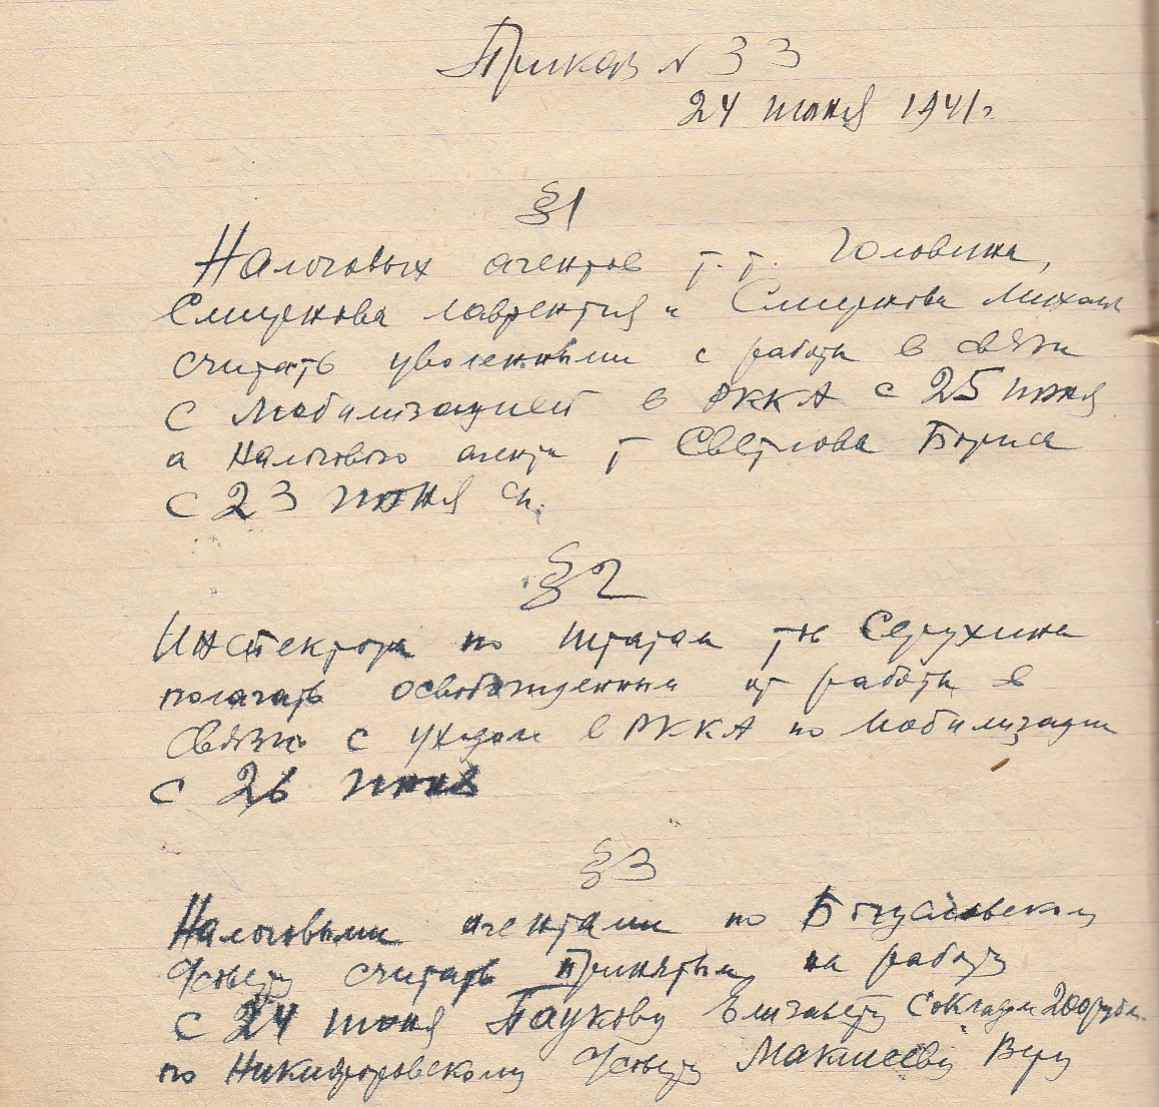 Приказ № 33
24 июня 1941 г
§1
Налоговых агентов т.т. Головина,
Смирнова Лаврентия и Смирнова Михаил
считать уволенными с работы в связи
с мобилизацией в РККА с 25 июня
а налогового агента т Светлова Бориса
с 23 июня
§2
Инспектора по штатам Серухина
полагать освобожденным от работы в
связи с уходом в РККА по мобилизации
с 26 июня
§3
Налоговыми агентами по
считать принятым на работу
с 24 июня Паукову Елизавету с окладом 200 рубл.
по Никифоровскому Макшееву Веру